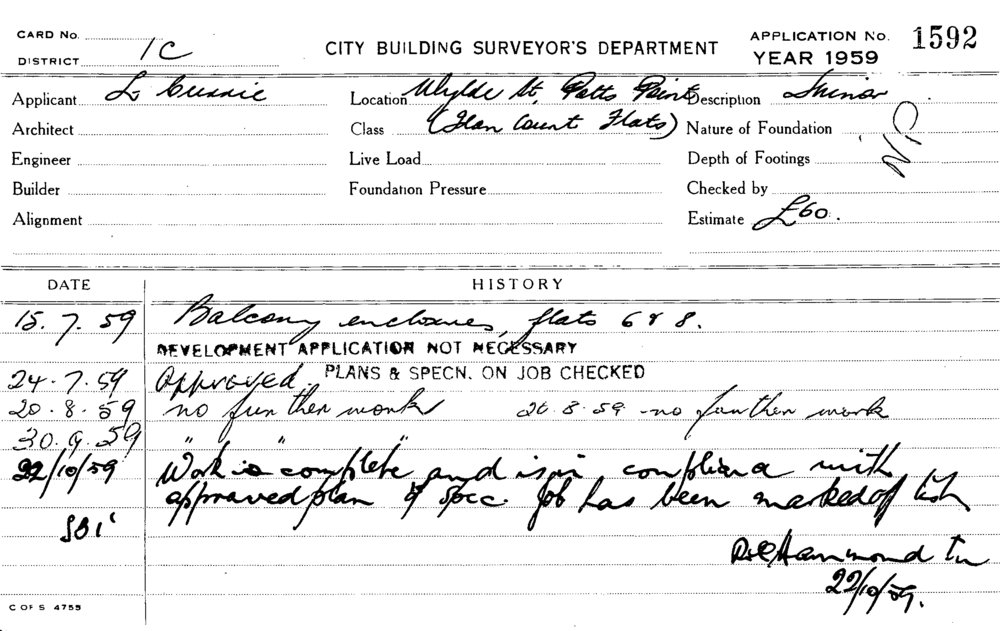 CARD No.
DISTRICT 1C
CITY BUILDING SURVEYOR'S DEPARTMENT
APPLICATION No. 1592
YEAR 1959
Applicant L
Location Wylde St, Potts Point
Description Minor
Architect
Class Flats)
Nature of Foundation
Engineer
Live Load
Depth of Footings
Builder
Foundation Pressure
Checked by
Alignment
Estimate £60.
DATE HISTORY
15.7.59 Balcony enclosures, flats 6 & 8.
DEVELOPMENT APPLICATION NOT NECESSARY
24.7.59 Approved. PLANS & SPECN. ON JOB CHECKED
20.8.59 no further work 26.8.59 - no further work
30.9.59 " " "
22/10/59 Work is complete and is in compliance with
approved plan & spec. Job has been marked off
R Hammond
22/10/59.
C OF S 4755